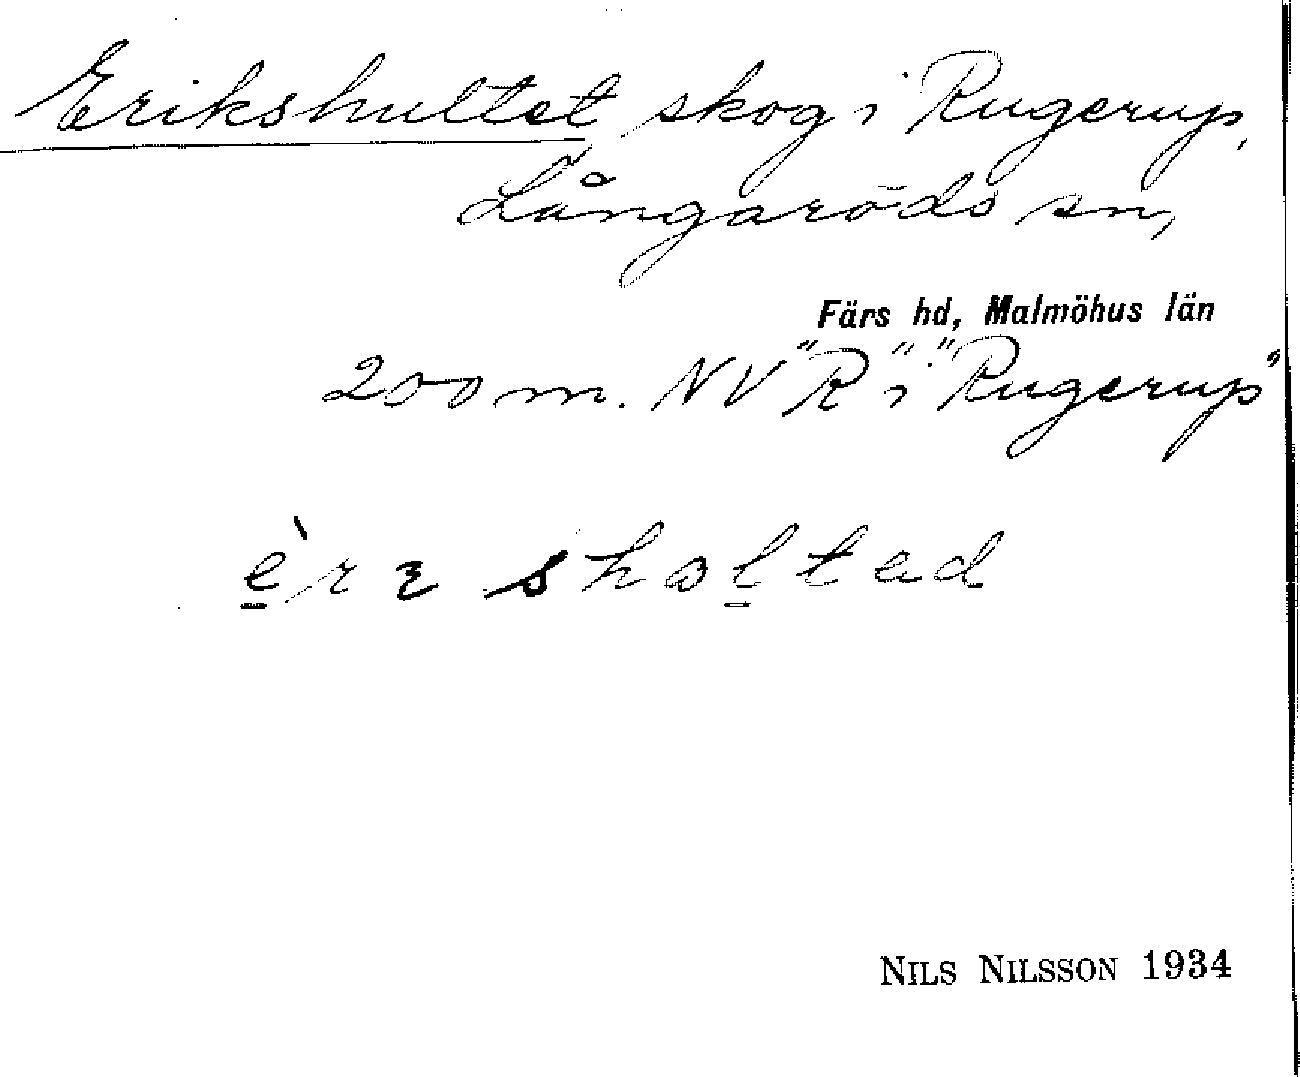 Erikshultet skog i Rugerup,
Långaröds sn,
Färs hd, Malmöhus län
200 m. NV "R" i "Rugerup"
èrɛsholtad
NILS NILSSON 1934